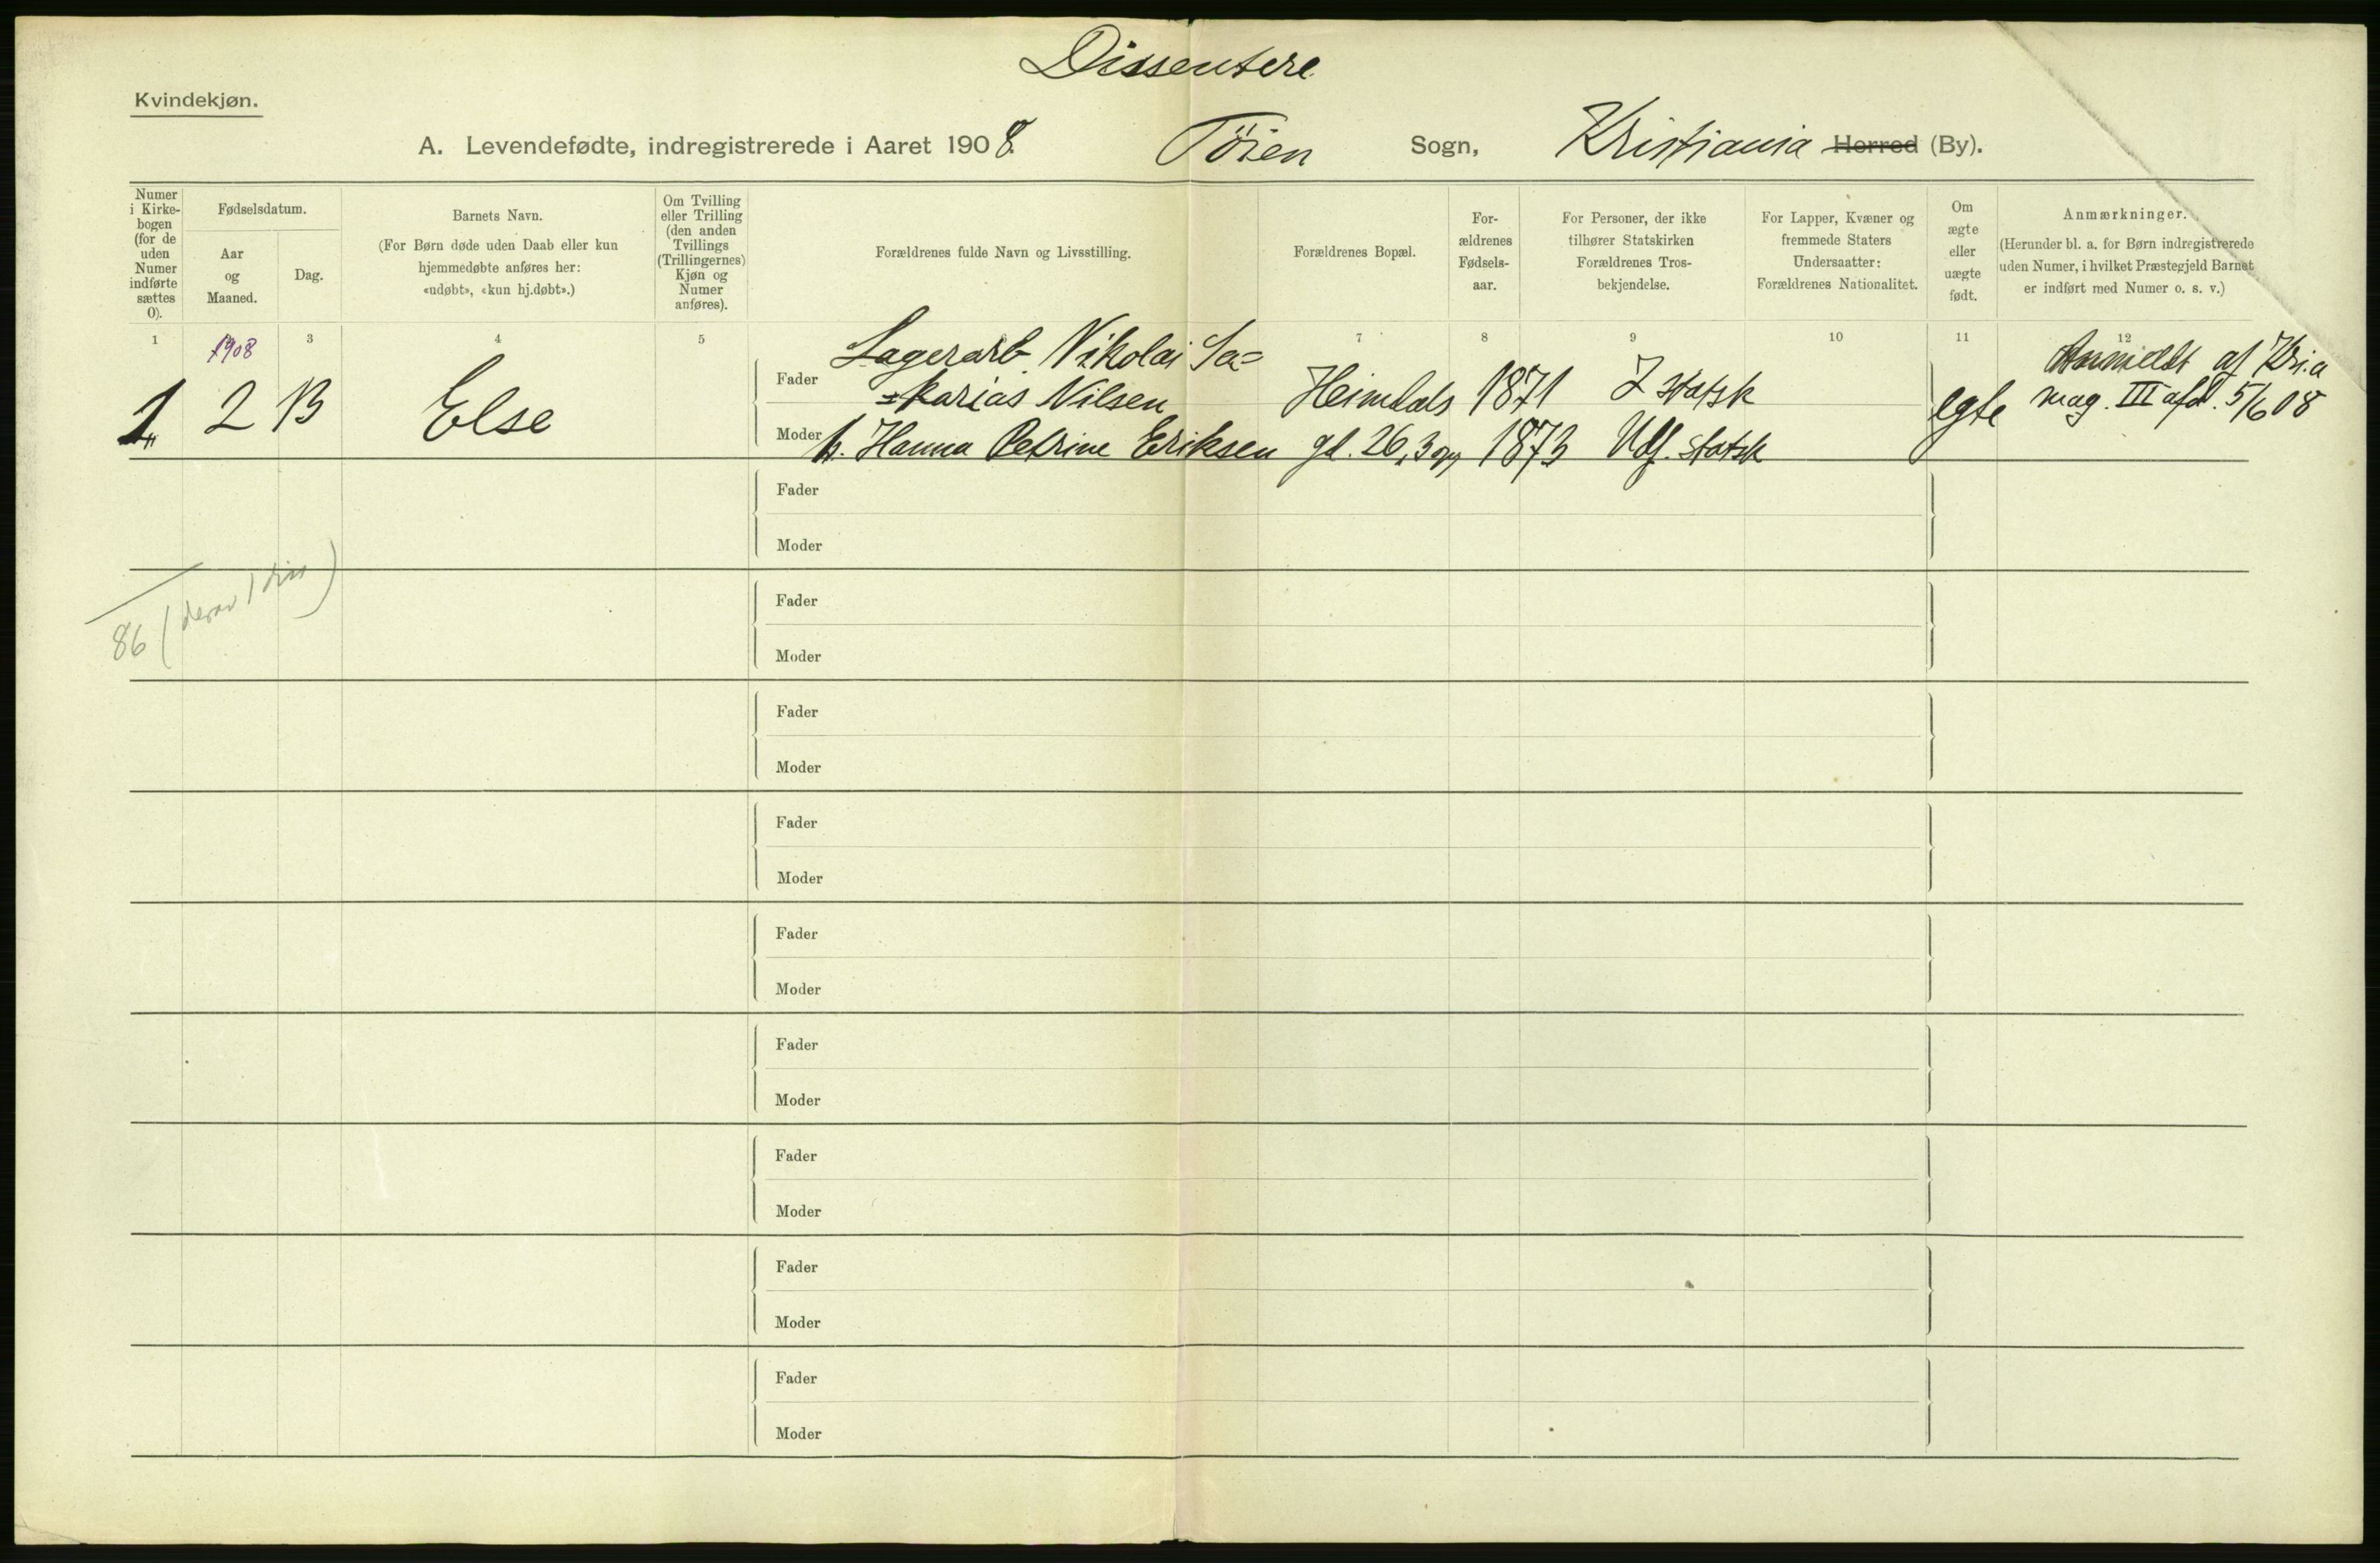 Dissentere
Kvindekjøn.
A. Levendefødte, indregistrerede i Aaret 1908. Töien Sogn, Kristiania Herred (By).
Numer i Kirkebogen (for de uden Numer indførte sættes 0).
Fødselsdatum.
Aar og Maaned.
Dag.
Barnets Navn.
(For Børn døde uden Daab eller kun hjemmedøbte anføres her: «udøbt», «kun hj.døbt».)
Om Tvilling eller Trilling (den anden Tvillings (Trillingernes) Kjøn og Numer anføres).
Forældrenes fulde Navn og Livsstilling.
Forældrenes Bopæl.
Forældrenes Fødselsaar.
For Personer, der ikke tilhører Statskirken Forældrenes Trosbekjendelse.
For Lapper, Kvæner og fremmede Staters Undersaatter: Forældrenes Nationalitet.
Om ægte eller uægte født.
Anmærkninger.
(Herunder bl. a. for Børn indregistrerede uden Numer, i hvilket Præstegjeld Barnet er indført med Numer o. s. v.)
1 3 4 5 7 8 9 10 11 12
1908
Lagerarb. Nikolai Sa=
Fader =karias Nilsen Heimdals 1871 I statsk
1 2 13 Else
egte Anmeldt af Kr.a
mag. III afd. 5/6 08
Moder h. Hanna Petrine Eriksen gd. 26, 3 opg 1873 Udf. statsk
Fader
Moder
86 (derav 1 diss)
Fader
Moder
Fader
Moder
Fader
Moder
Fader
Moder
Fader
Moder
Fader
Moder
Fader
Moder
Fader
Moder